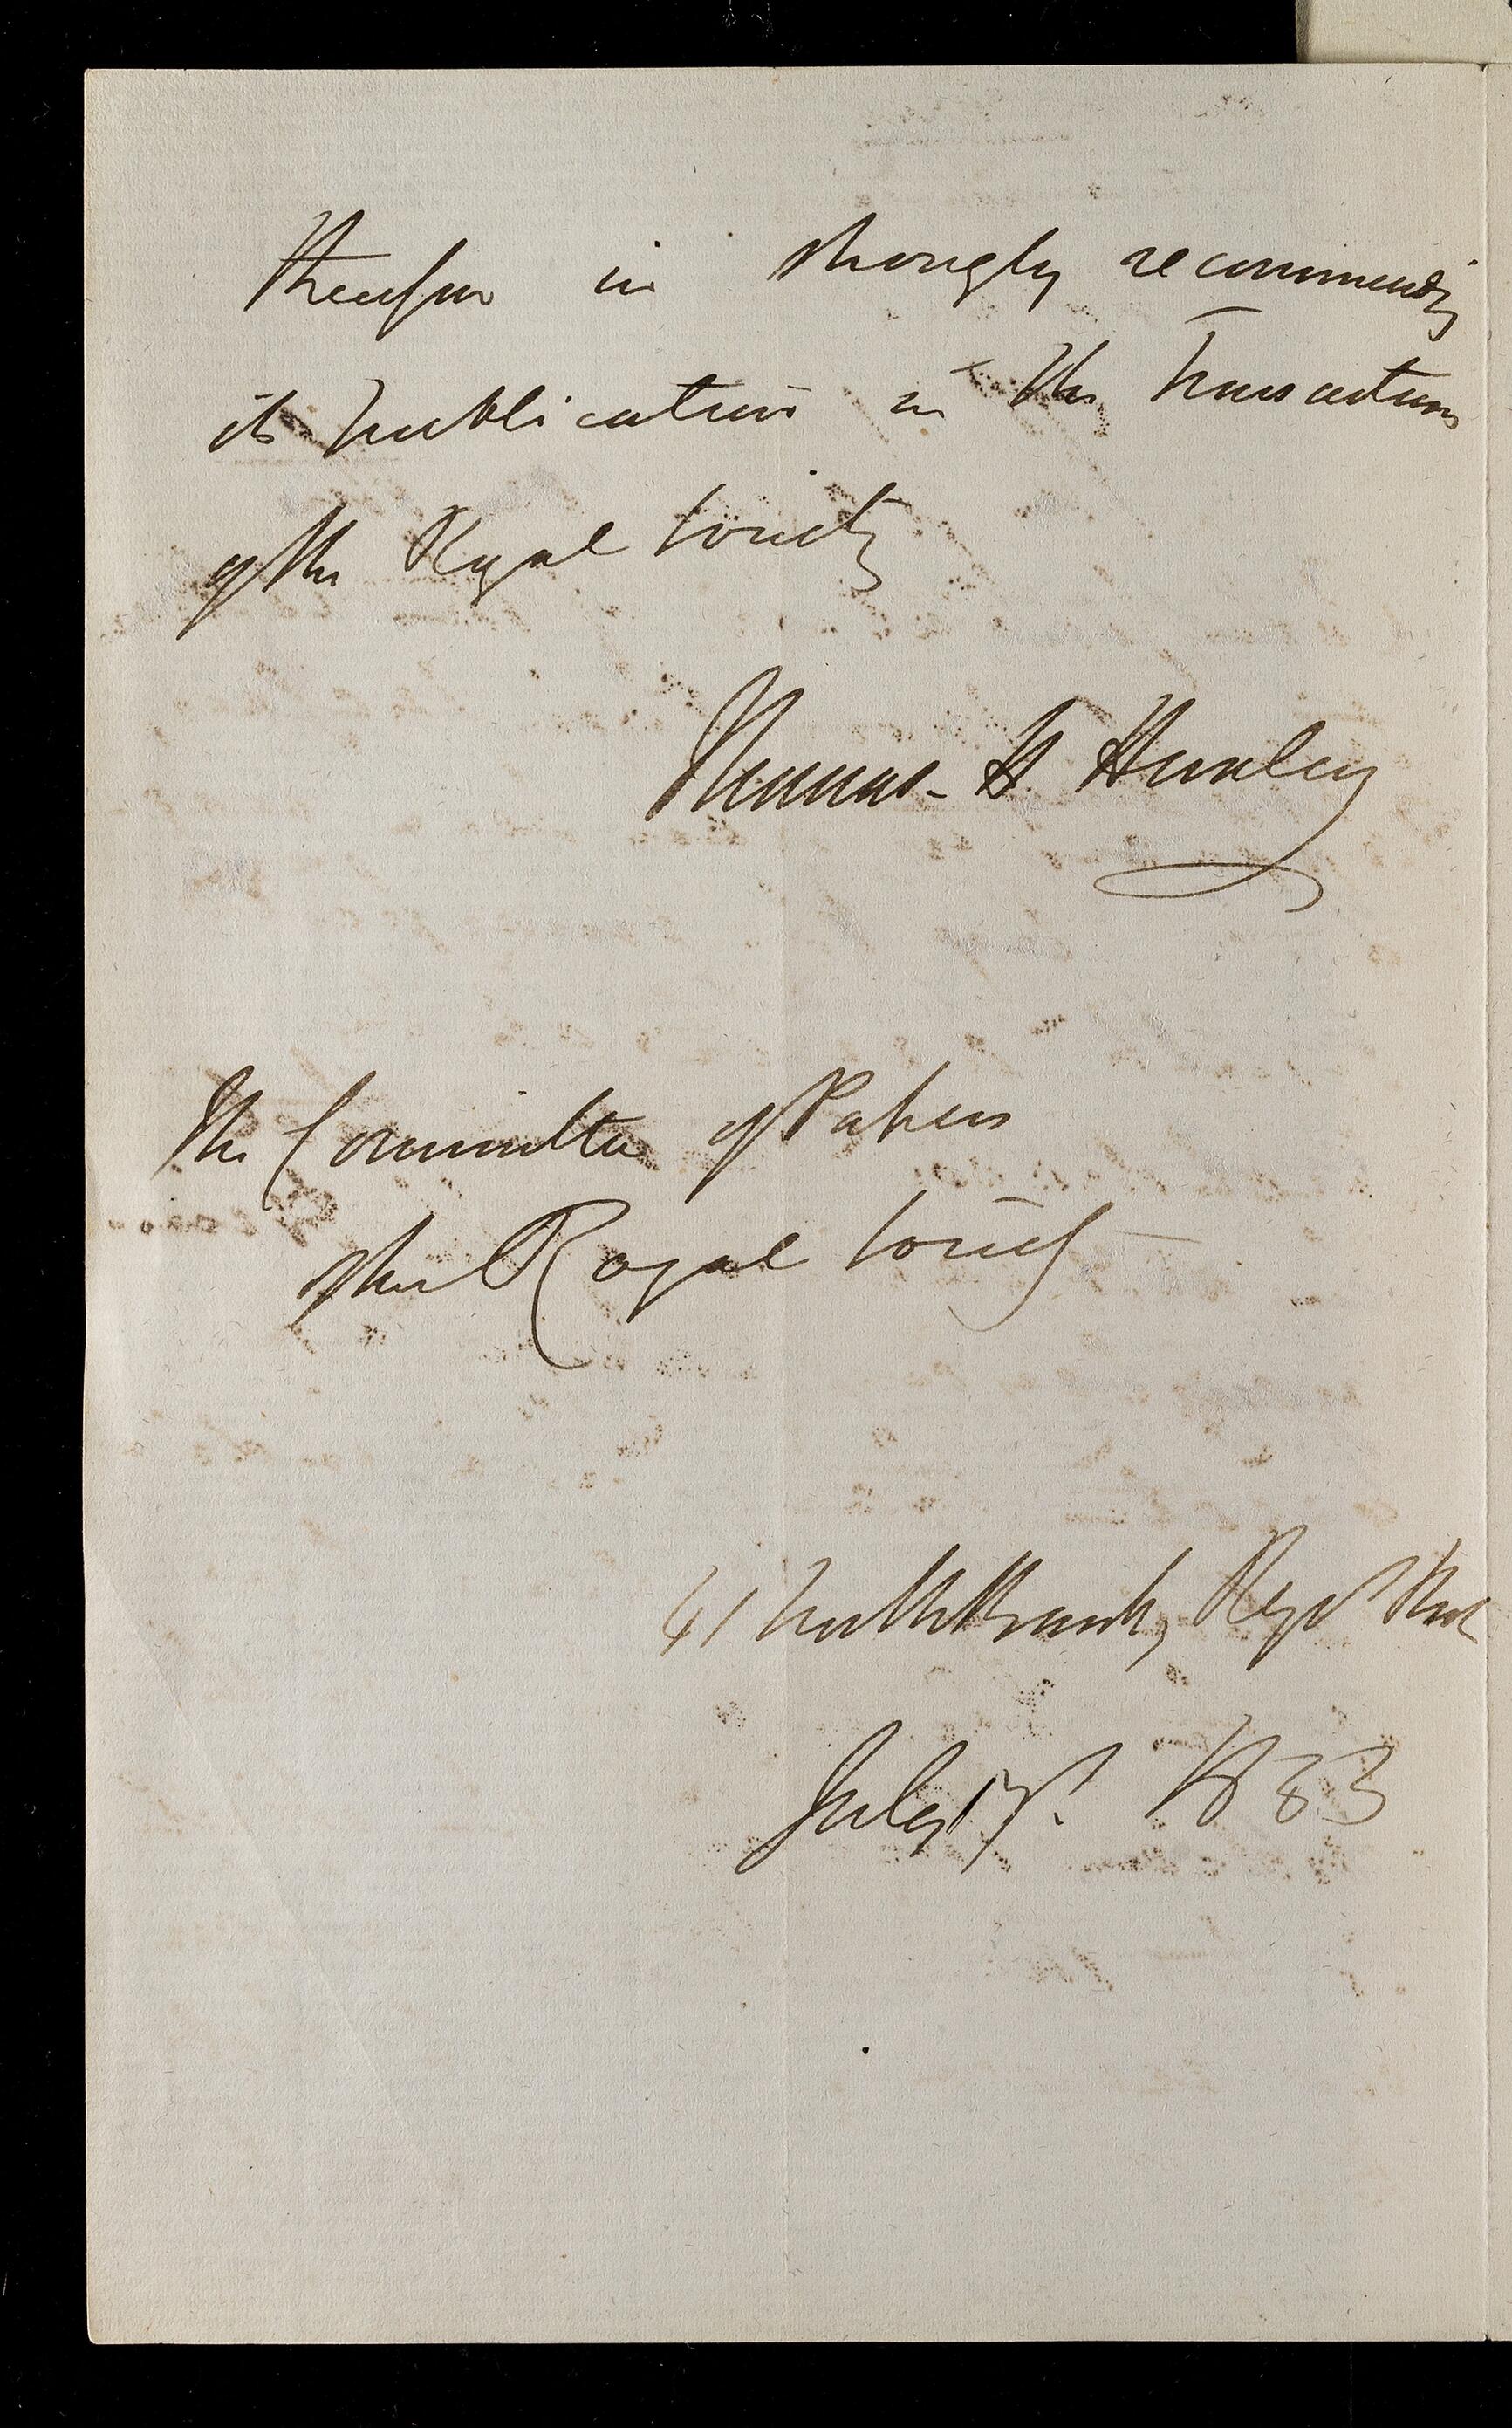 therefore in strongly recommending
its publication in the Transactions
of the Royal Society
Thomas H. Huxley
The Committee of Papers
of the Royal Society
41 North Bank, Regt Park
July 17th 1853